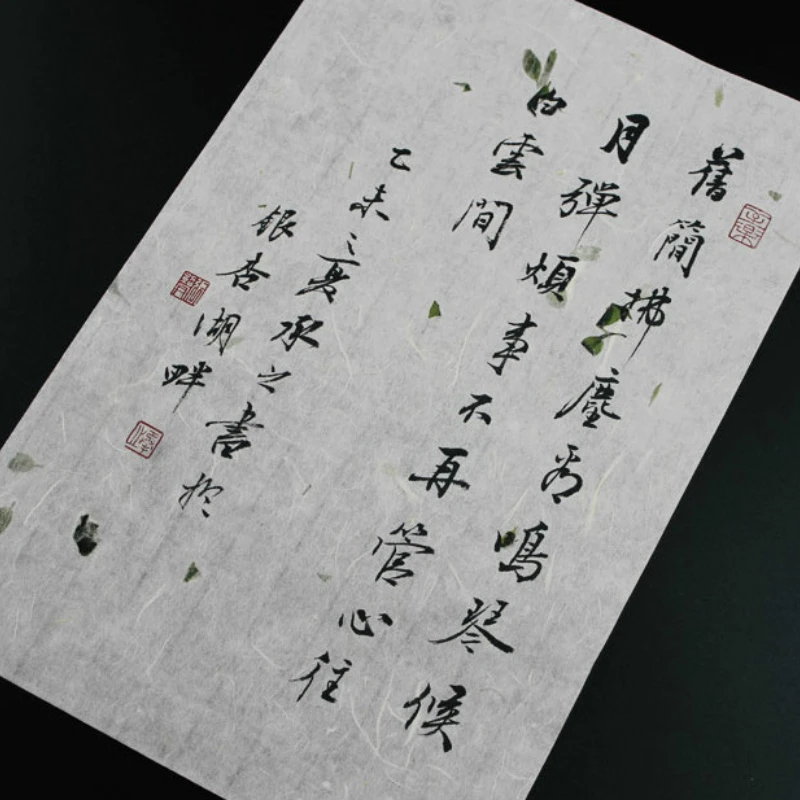 舊簡拂塵看鳴琴候
月彈煩事不再管心往
白雲間
乙未之夏承之書於
銀杏湖畔